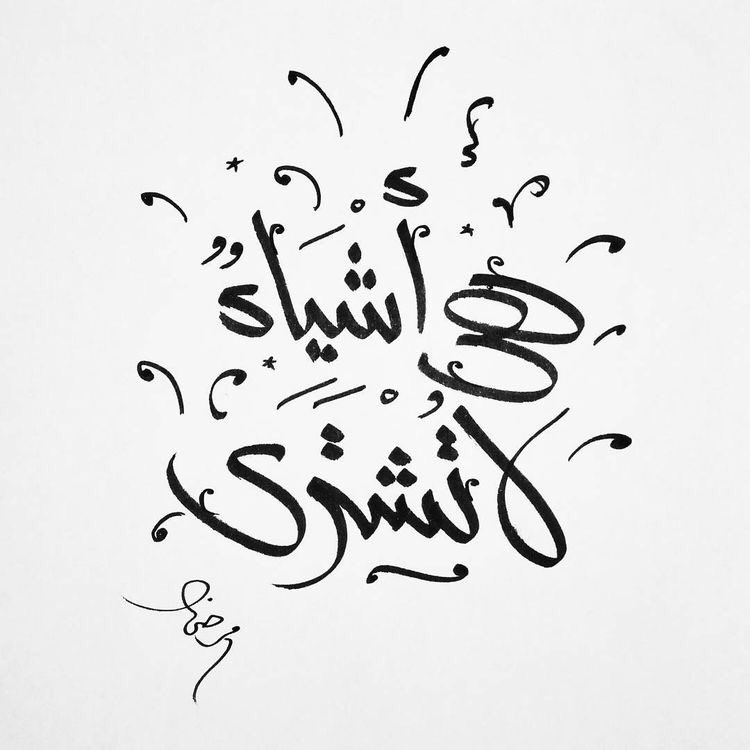 هي أشْيَاءٌ
لا تُشْتَرَى